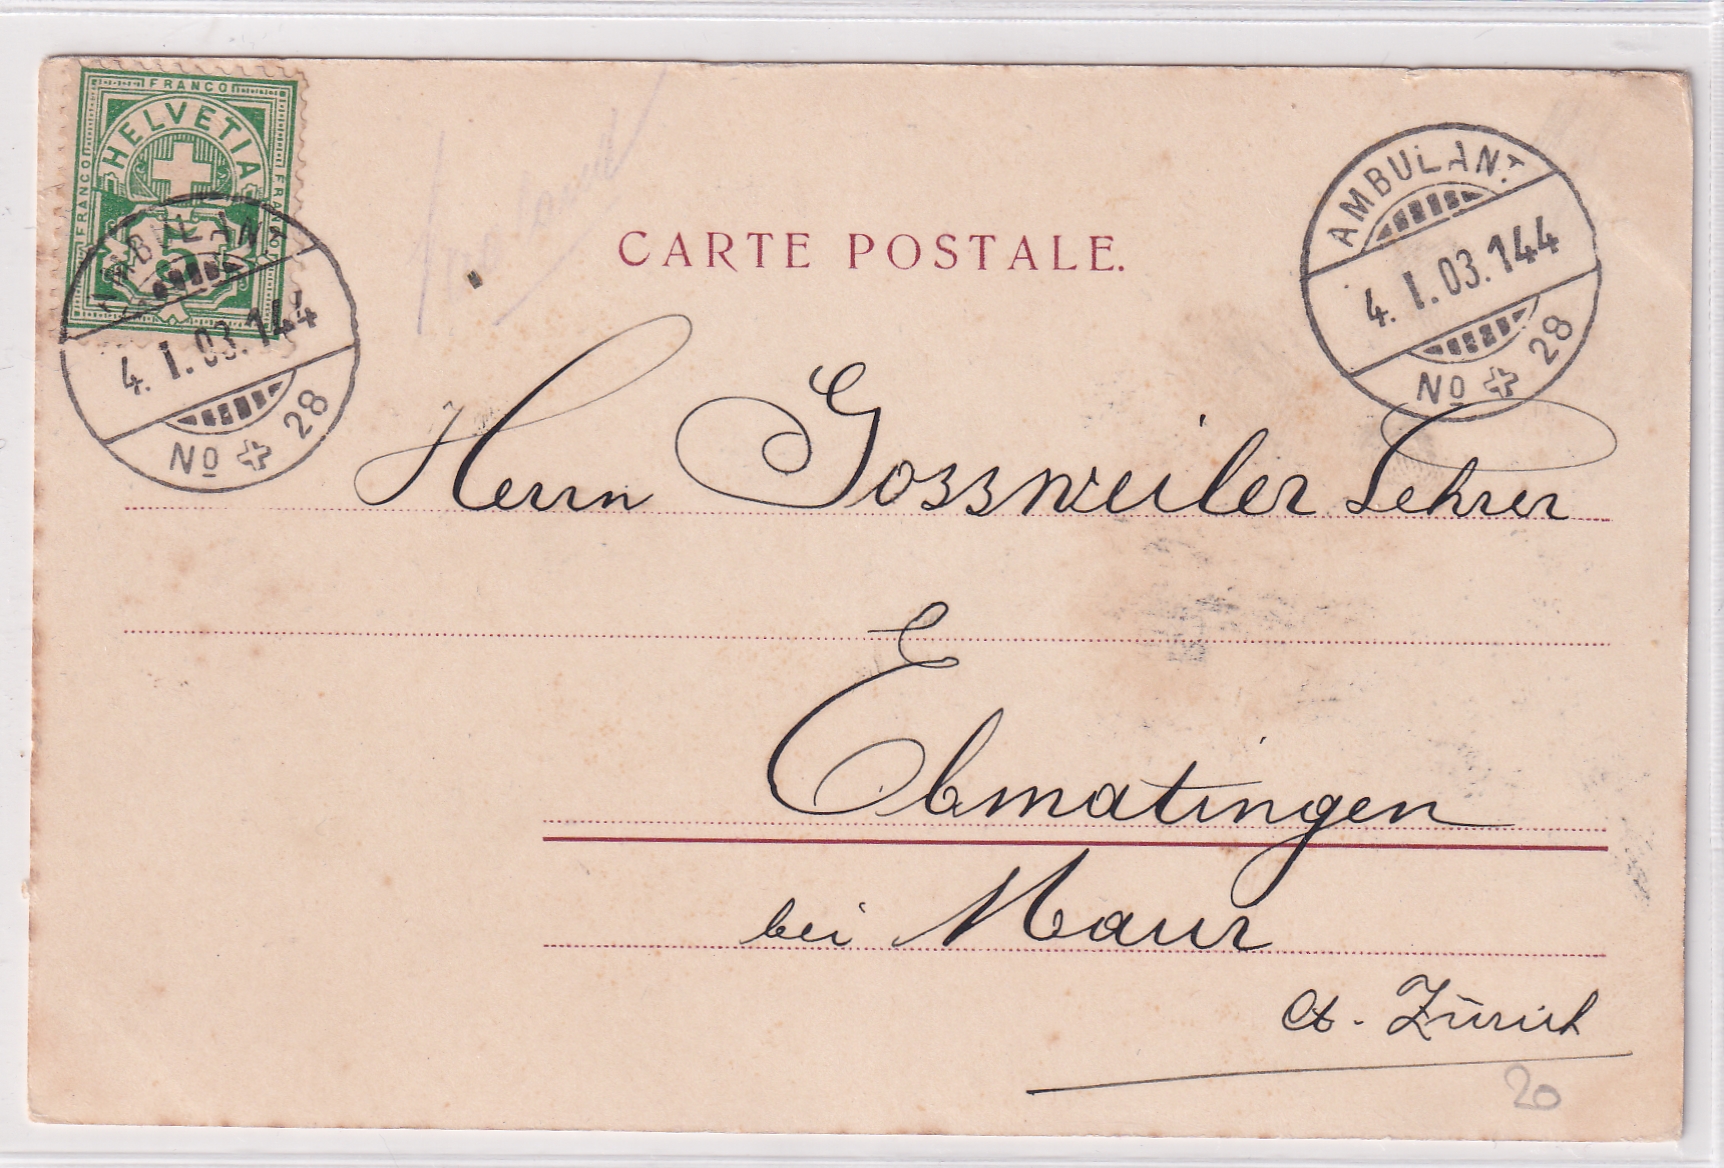 FRANCO
FRANCO
FRANCO
HELVETIA
5
AMBULANT
4. I. 03. 144
No 28
AMBULANT
4. I. 03. 144
No 28
CARTE POSTALE.
Herrn Gossweiler Lehrer
Ebmatingen
bei Maur
Ct. Zürich
20